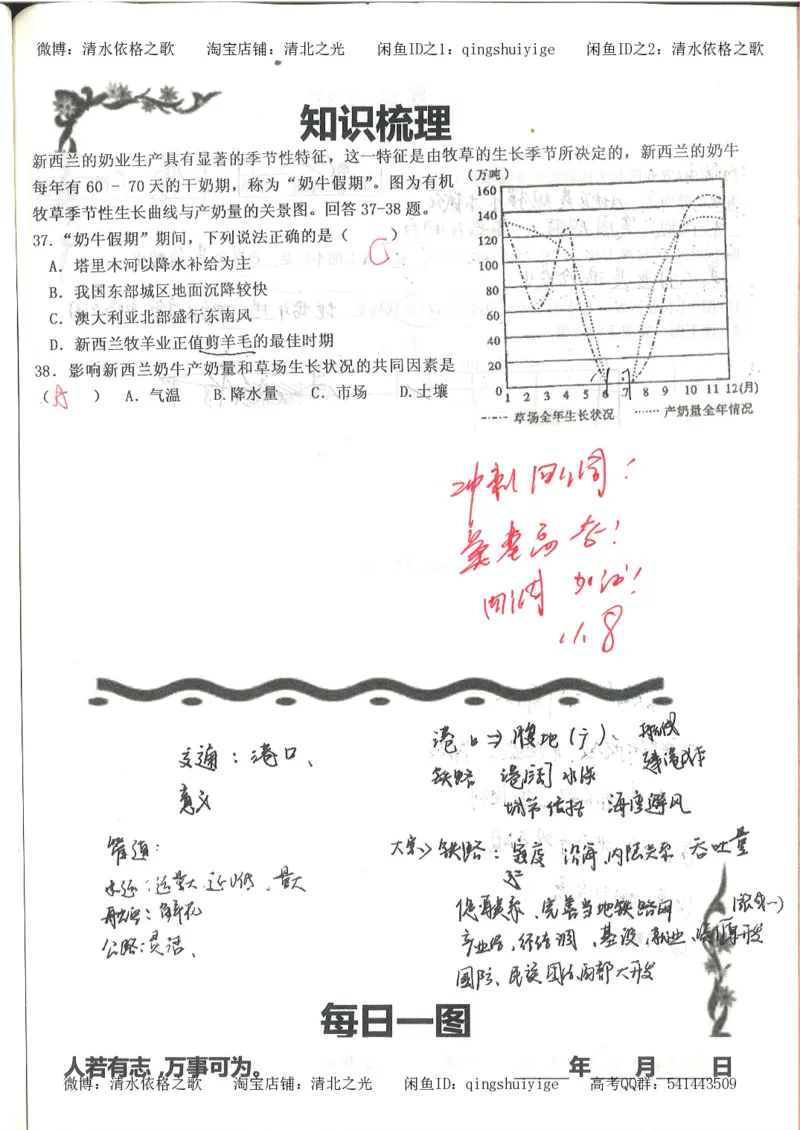 微博：清水依格之歌 淘宝店铺：清北之光 闲鱼ID之1：qingshuiyige 闲鱼ID之2：清水依格之歌
知识梳理
新西兰的奶业生产具有显著的季节性特征，这一特征是由牧草的生长季节所决定的，新西兰的奶牛
每年有 60 - 70 天的干奶期，称为“奶牛假期”。图为有机
牧草季节性生长曲线与产奶量的关景图。回答 37-38 题。
37．“奶牛假期”期间，下列说法正确的是（ C ）
A．塔里木河以降水补给为主
B．我国东部城区地面沉降较快
C．澳大利亚北部盛行东南风
D．新西兰牧羊业正值剪羊毛的最佳时期
38．影响新西兰奶牛产奶量和草场生长状况的共同因素是
（ ） A．气温 B.降水量 C．市场 D.土壤
(万吨)
160
140
120
100
80
60
40
20
0
1 2 3 4 5 6 7 8 9 10 11 12(月)
草场全年生长状况 产奶量全年情况
冲刺
高考！
加油！
交通：港口、
意义
港口⇒腹地(广)、航线
铁路 港阔水深 建港条件
城市依托 海湾避风
管道：
水运：运量大 运价低、量大
航空：鲜花
公路：灵活、
大宗》铁路： 沿海、内陆关系、吞吐量
促联系、完善当地铁路网
基设、就业、资源开发
国防、民族团结、西部大开发
每日一图
人若有志，万事可为。 年 月 日
微博：清水依格之歌 淘宝店铺：清北之光 闲鱼ID：qingshuiyige 高考QQ群：541443509